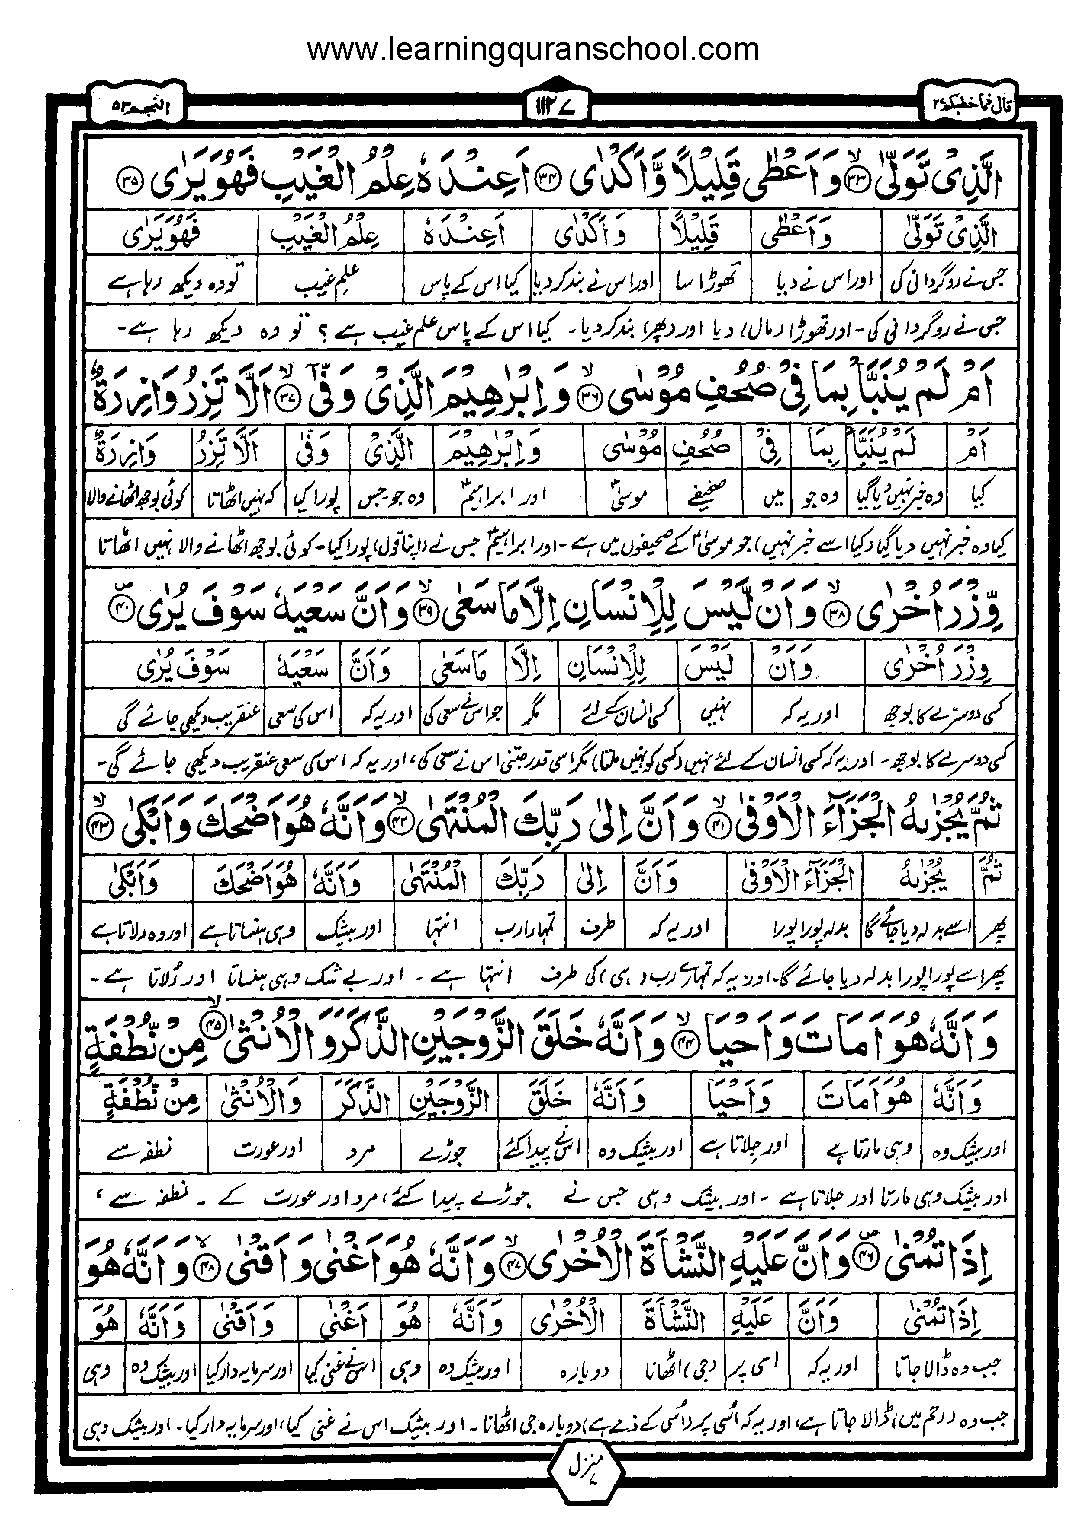 www.learningquranschool.com
قال فما خطبكم ٢٧ ١١٢٧ النجم ٥٣
الَّذِیْ تَوَلّٰی ﴿٣٣﴾ وَ اَعْطٰی قَلِیْلًا وَّ اَكْدٰی ﴿٣٤﴾ اَعِنْدَهٗ عِلْمُ الْغَیْبِ فَهُوَ یَرٰی ﴿٣٥﴾
الَّذِیْ تَوَلّٰی وَ اَعْطٰی قَلِیْلًا وَ اَكْدٰی اَعِنْدَهٗ عِلْمُ الْغَیْبِ فَهُوَ یَرٰی
جس نے روگردانی کی اور اس نے دیا تھوڑا سا اور اس نے بند کر دیا کیا اس کے پاس علم غیب تو وہ دیکھ رہا ہے
جس نے روگردانی کی۔ اور تھوڑا (مال) دیا اور (پھر) بند کر دیا۔ کیا اس کے پاس علم غیب ہے؟ تو وہ دیکھ رہا ہے۔
اَمْ لَمْ یُنَبَّاْ بِمَا فِیْ صُحُفِ مُوْسٰی ﴿٣٦﴾ وَ اِبْرٰهِیْمَ الَّذِیْ وَفّٰۤی ﴿٣٧﴾ اَلَّا تَزِرُ وَازِرَةٌ
اَمْ لَمْ یُنَبَّاْ بِمَا فِیْ صُحُفِ مُوْسٰی وَ اِبْرٰهِیْمَ الَّذِیْ وَفّٰی اَلَّا تَزِرُ وَازِرَةٌ
کیا وہ خبر نہیں دیا گیا وہ جو میں صحیفے موسیٰؑ اور ابراہیمؑ وہ جو جس پورا کیا کہ نہیں اٹھاتا کوئی بوجھ اٹھانے والا
کیا وہ خبر نہیں دیا گیا (کیا اسے خبر نہیں) جو موسیٰؑ کے صحیفوں میں ہے۔ اور ابراہیمؑ جس نے (اپنا قول) پورا کیا۔ کوئی بوجھ اٹھانے والا نہیں اٹھاتا
وِّزْرَ اُخْرٰی ﴿٣٨﴾ وَ اَنْ لَّیْسَ لِلْاِنْسَانِ اِلَّا مَا سَعٰی ﴿٣٩﴾ وَ اَنَّ سَعْیَهٗ سَوْفَ یُرٰی ﴿٤٠﴾
وِزْرَ اُخْرٰی وَ اَنْ لَیْسَ لِلْاِنْسَانِ اِلَّا مَا سَعٰی وَ اَنَّ سَعْیَهٗ سَوْفَ یُرٰی
کسی دوسرے کا بوجھ اور یہ کہ نہیں کسی انسان کے لئے مگر جو اس نے سعی کی اور یہ کہ اس کی سعی عنقریب دیکھی جائے گی
کسی دوسرے کا بوجھ۔ اور یہ کہ کسی انسان کے لئے نہیں (کسی کو نہیں ملتا) مگر اسی قدر جتنی اس نے سعی کی، اور یہ کہ اس کی سعی عنقریب دیکھی جائے گی۔
ثُمَّ یُجْزٰىهُ الْجَزَآءَ الْاَوْفٰی ﴿٤١﴾ وَ اَنَّ اِلٰی رَبِّكَ الْمُنْتَهٰی ﴿٤٢﴾ وَ اَنَّهٗ هُوَ اَضْحَكَ وَ اَبْكٰی ﴿٤٣﴾
ثُمَّ یُجْزٰىهُ الْجَزَآءَ الْاَوْفٰی وَ اَنَّ اِلٰی رَبِّكَ الْمُنْتَهٰی وَ اَنَّهٗ هُوَ اَضْحَكَ وَ اَبْكٰی
پھر اسے بدلہ دیا جائے گا بدلہ پورا پورا اور یہ کہ طرف تمہارا رب انتہا اور بیشک وہی ہنساتا ہے اور وہ رلاتا ہے
پھر اسے پورا پورا بدلہ دیا جائے گا، اور یہ کہ تمہارے رب (ہی) کی طرف انتہا ہے۔ اور بے شک وہی ہنساتا اور رُلاتا ہے۔
وَ اَنَّهٗ هُوَ اَمَاتَ وَ اَحْیَا ﴿٤٤﴾ وَ اَنَّهٗ خَلَقَ الزَّوْجَیْنِ الذَّكَرَ وَ الْاُنْثٰی ﴿٤٥﴾ مِنْ نُّطْفَةٍ
وَ اَنَّهٗ هُوَ اَمَاتَ وَ اَحْیَا وَ اَنَّهٗ خَلَقَ الزَّوْجَیْنِ الذَّكَرَ وَ الْاُنْثٰی مِنْ نُّطْفَةٍ
اور بیشک وہ وہی مارتا ہے اور جِلاتا ہے اور بیشک وہ اس نے پیدا کئے جوڑے مرد اور عورت نطفہ سے
اور بیشک وہی مارتا اور جِلاتا ہے۔ اور بیشک وہی جس نے جوڑے پیدا کئے، مرد اور عورت کے۔ نطفہ سے،
اِذَا تُمْنٰی ﴿٤٦﴾ وَ اَنَّ عَلَیْهِ النَّشْاَةَ الْاُخْرٰی ﴿٤٧﴾ وَ اَنَّهٗ هُوَ اَغْنٰی وَ اَقْنٰی ﴿٤٨﴾ وَ اَنَّهٗ هُوَ
اِذَا تُمْنٰی وَ اَنَّ عَلَیْهِ النَّشْاَةَ الْاُخْرٰی وَ اَنَّهٗ هُوَ اَغْنٰی وَ اَقْنٰی وَ اَنَّهٗ هُوَ
جب وہ ڈالا جاتا اور یہ کہ اسی پر (جی) اٹھانا دوبارہ اور بیشک وہ وہی اس نے غنی کیا اور سرمایہ دار کیا اور بیشک وہ وہی
جب وہ (رحم میں) ڈالا جاتا ہے، اور یہ کہ اُسی پر (اُسی کے ذمے ہے) دوبارہ جی اٹھانا۔ اور بیشک اس نے غنی کیا، اور سرمایہ دار کیا۔ اور بیشک وہی
منزل ٧